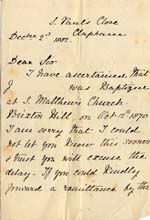 S. Pauls Close
Clapham
Decbr 2nd 1882.
Dear Sir
I have ascertained that
J was Baptized
at S. Matthews Church
Brixton Hill, on Octr 1870
I am sorry that I could
not let you know this sooner
& trust you will excuse the
delay - If you could kindly
forward a remittance by the